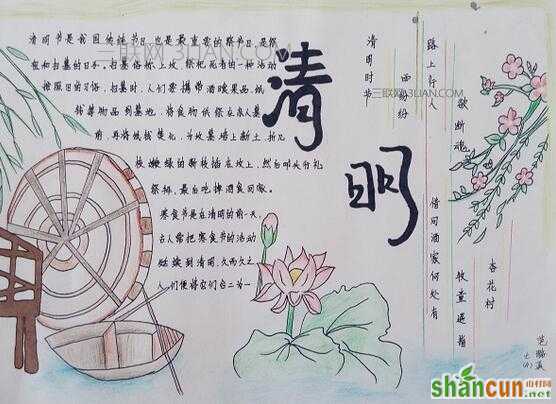 清明节是我国传统节日,也是最重要的祭节日,是祭
祖和扫墓的日子。扫墓俗称上坟,祭祀死者的一种活动
按照旧的习俗,扫墓时,人们要携带酒食果品,纸
钱等物品到墓地,将食物供祭在亲人墓
前,再将纸钱焚化,为坟墓培上新土,折几
枝嫩绿的新枝插在坟上,然后叩头行礼
祭拜,最后吃掉酒食回家。
寒食节是在清明的前一天,
古人常把寒食节的活动
延续到清明,久而久之
人们便将它们合二为一
清明
清明时节
雨纷纷
路上行人
欲断魂
借问酒家何处有
牧童遥指
杏花村
三联网 3LIAN.COM
三联网 3LIAN.COM
shancun
山村网
.net